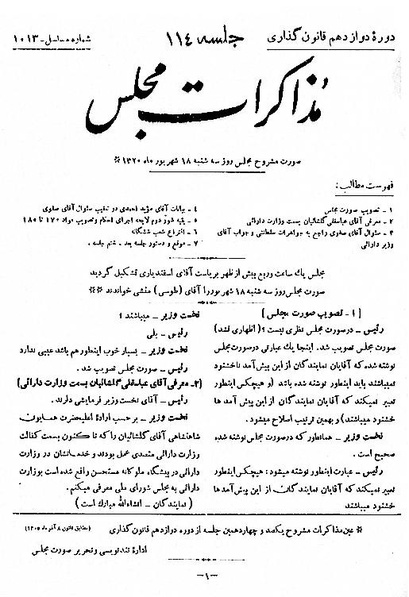 دورهٔ دوازدهم قانون گذاری
جلسه ۱۱٤
شماره مسلسل - ۱۰۱۳
مذاکرات مجلس
صورت مشروح مجلس روز سه شنبه ۱۸ شهریور ماه ۱۳۲۰ *
فهرست مطالب:
۱ - تصویب صورت مجلس
۲ - معرفی آقای عباسقلی گلشائیان بسمت وزارت دارائی
۳ - سئوال آقای صفوی راجع به جواهرات سلطنتی و جواب آقای
وزیر دارائی
٤ - بیانات آقای مؤید احمدی در تعقیب سئوال آقای صفوی
۵ - بقیه شور دوم لایحه اجرای احکام و تصویب مواد ۱۷۰ تا ۱۸۵
٦ - اقتراع شعب ششگانه
۷ - موقع و دستور جلسه بعد - ختم جلسه
مجلس یک ساعت و ربع پیش از ظهر بریاست آقای اسفندیاری تشکیل گردید
صورت مجلس روز سه شنبه ۱۸ شهریور را آقای (طوسی) منشی خواندند **
[۱ - تصویب صورت مجلس]
رئیس - در صورت مجلس نظری نیست؟ (اظهاری نشد)
صورت مجلس تصویب شد. اینجا یک عبارتی در صورت مجلس
نوشته شده که آقایان نمایندگان از این پیش آمد ناخشنود
نمیباشند باید اینطور نوشته شده باشد (و هیچکس اینطور
تعبیر نمیکند که آقایان نمایندگان از این پیش آمدها
خشنود میباشند) و بهمین ترتیب اصلاح میشود.
نخست وزیر - همانطور که در صورت مجلس نوشته شده
صحیح است.
رئیس - عبارت اینطور نوشته میشود: هیچکس اینطور
تعبیر نمیکند که آقایان نمایندگان از این پیش آمدها
خشنود میباشند
نخست وزیر - میباشند؟
رئیس - بلی
نخست وزیر - بسیار خوب اینطور هم باشد عیبی ندارد
رئیس - صورت مجلس تصویب شد.
[۲ - معرفی آقای عباسقلی گلشائیان بسمت وزارت دارائی]
رئیس - آقای نخست وزیر فرمایشی دارند.
نخست وزیر - بر حسب ارادهٔ اعلیحضرت همایون
شاهنشاهی آقای گلشائیان را که تا کنون بسمت کفالت
وزارت دارائی متصدی عمل بودند و خدماتشان در وزارت
دارائی در پیشگاه ملوکانه مستحسن واقع شده است بوزارت
دارائی به مجلس شورای ملی معرفی میکنم.
(نمایندگان - انشاءالله مبارک است)
* عین مذاکرات مشروح یکصد و چهاردهمین جلسه از دوره دوازدهم قانون گذاری
(مطابق قانون ۸ آذر ماه ۱۳۰۵)
ادارهٔ تند نویسی و تحریر صورت مجلس
- ۱ -